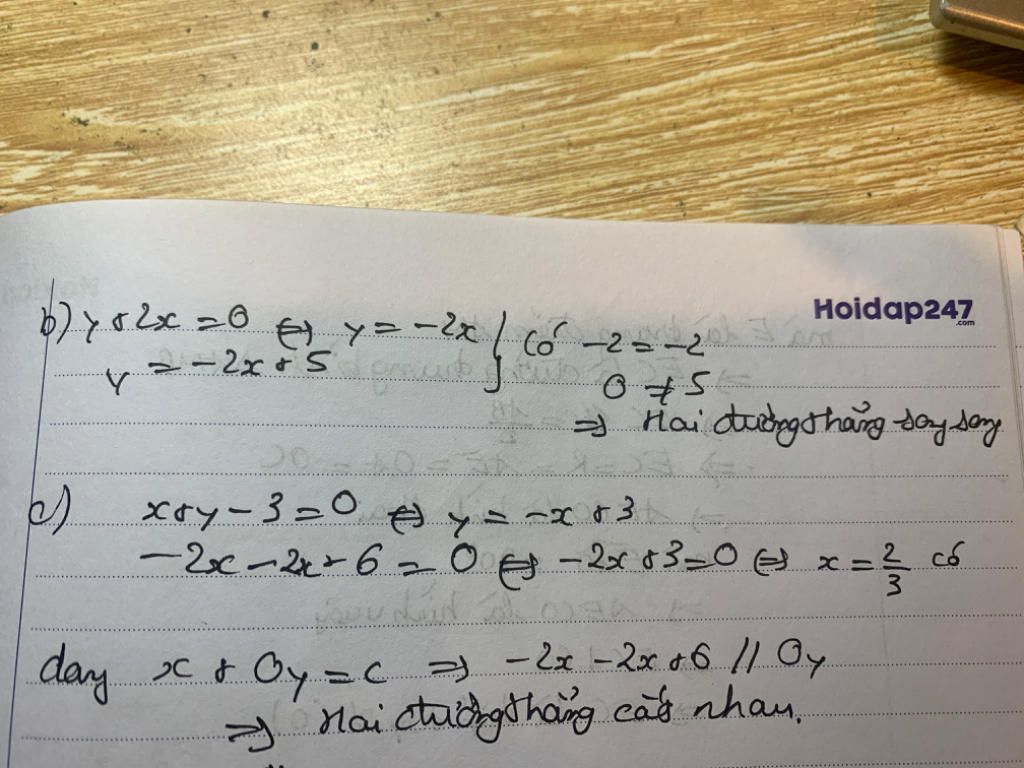 Hoidap247
.com
b) y + 2x = 0 ⇔ y = -2x } Có -2 = -2
y = -2x + 5 0 ≠ 5
⇒ Hai đường thẳng song song
c) x + y - 3 = 0 ⇔ y = -x + 3
-2x - 2x + 6 = 0 ⇔ -2x + 3 = 0 ⇔ x = 2/3 có
dạng x + 0y = c ⇒ -2x - 2x + 6 // Oy
⇒ Hai đường thẳng cắt nhau.